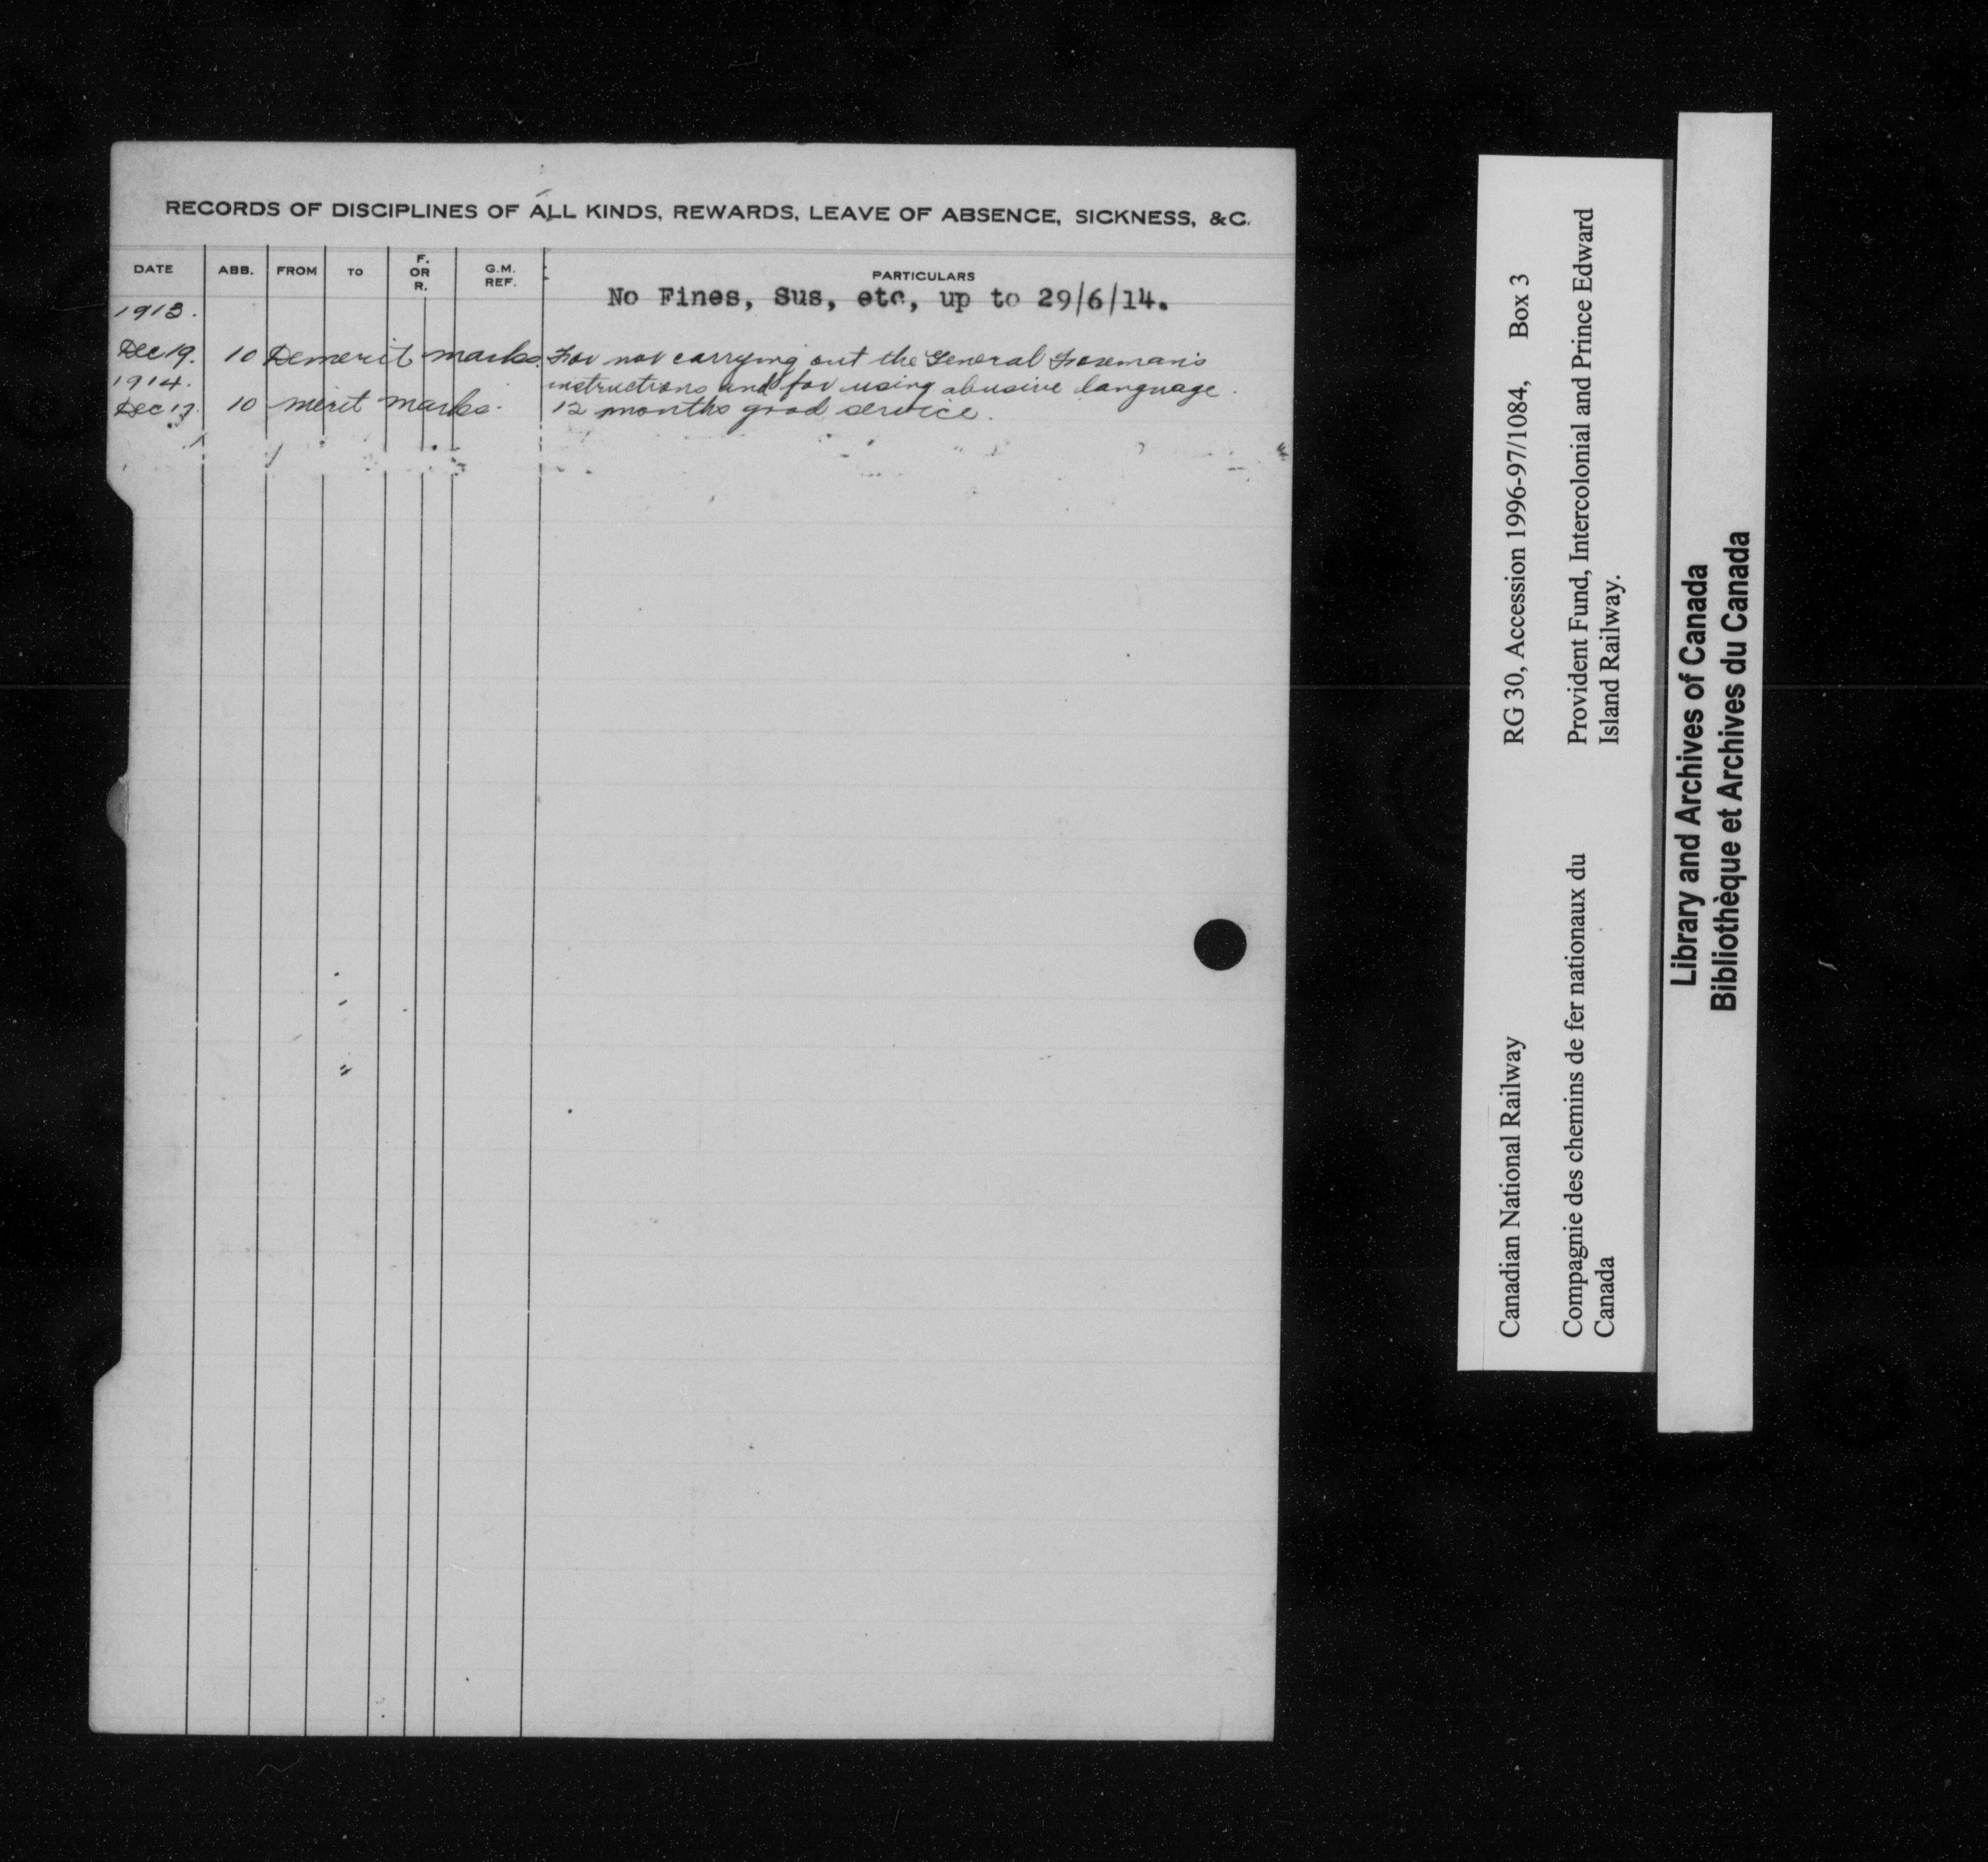 RECORDS OF DISCIPLINES OF ALL KINDS, REWARDS, LEAVE OF ABSENCE, SICKNESS, &C.
DATE ABB. FROM TO F. OR R. G.M. REF. PARTICULARS
No Fines, Sus, etc, up to 29/6/14.
1913.
Dec 19. 10 Demerit marks. For not carrying out the General Foreman's
instructions and for using abusive language.
1914.
Dec 19. 10 merit marks. 12 months good service.
Canadian National Railway RG 30, Accession 1996-97/1084, Box 3
Compagnie des chemins de fer nationaux du Provident Fund, Intercolonial and Prince Edward
Canada Island Railway.
Library and Archives of Canada
Bibliothèque et Archives du Canada